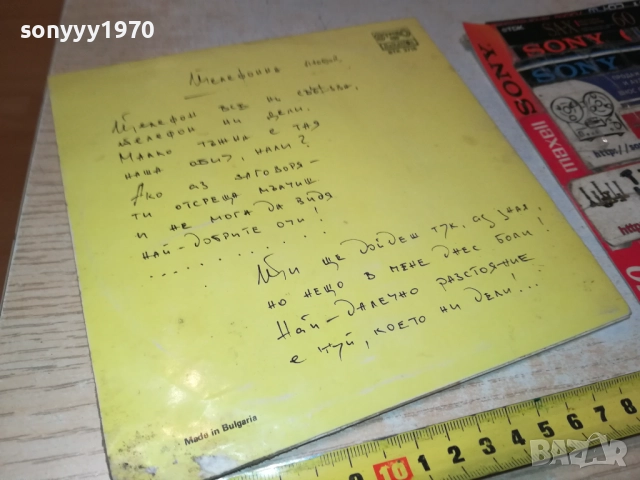 sonyyy1970
Телефонна любов
Телефон все ни свързва,
телефон ни дели.
Малко тъжна е тая
наша обич, нали?
Ако аз заговоря –
ти отсреща мълчиш
и не мога да видя
най-добрите очи!
. . . . . . . . . . .
Ти ще дойдеш тук, аз зная,
но нещо в мене днес боли!
Най-далечно разстояние
е туй, което ни дели!...
Made in Bulgaria
TDK
SONY
SONY
SONY
maxell
http://
http
10 1 2 3 4 5 6 7 8
BAZAR